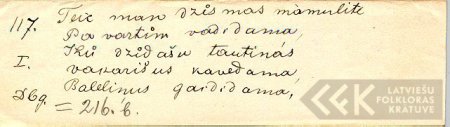 117. Teic man dzismas mamulite
Pa vartim vadidama,
I. Ikű dzidašu tautinās
vakarišus kavedama,
Dbg. Balelinus gaididama,
= 216.b.
LATVIEŠU
FOLKLORAS
KRĀTUVE